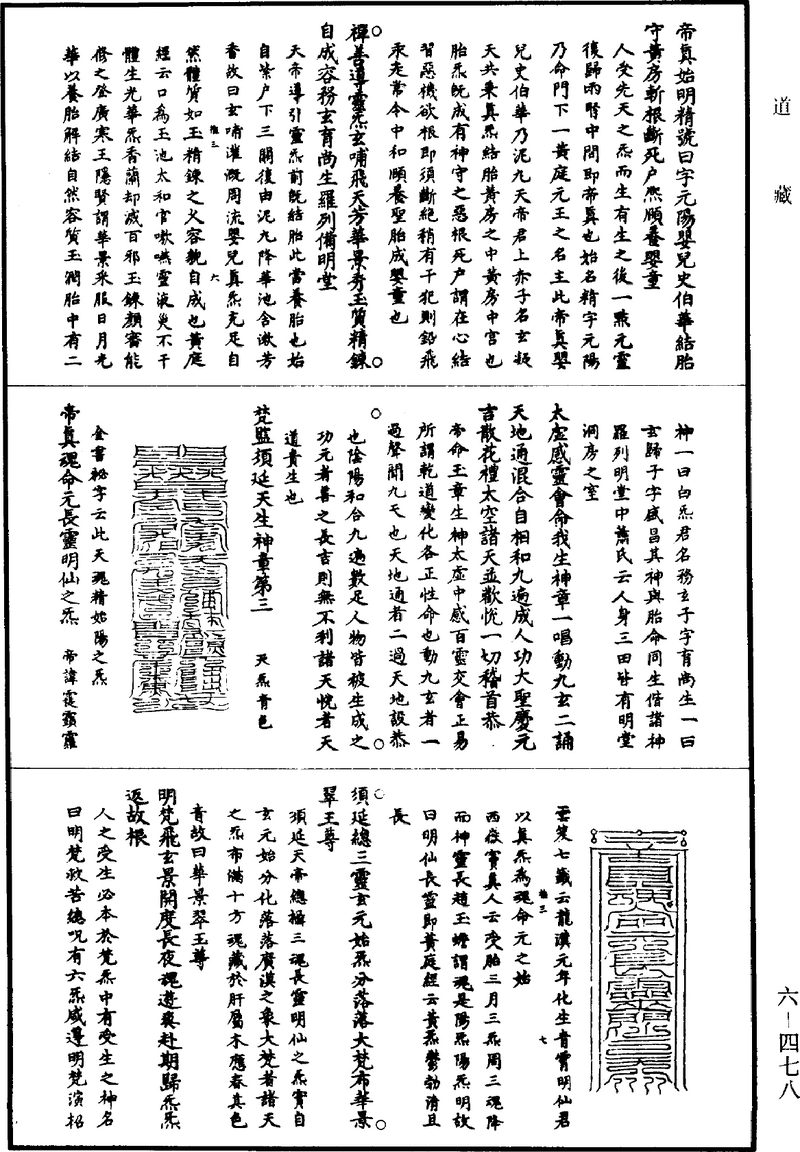 道藏
帝真始明精號曰字元陽嬰兒史伯華結胎
守黃房斬根斷死户熙頤養嬰童
人受先天之炁而生有生之後一點元靈
復歸兩腎中間即帝真也始名精字元陽
乃命門下一黃庭元王之名主此帝真嬰
兒史伯華乃泥九天帝君上赤子名玄凝
天共來真炁結胎黃房之中黃房中宮也
胎炁既成有神守之惡根死户謂在心結
習惡機欲根即須斷絕稍有干犯則鉛飛
汞走常令中和頤養聖胎成嬰童也
禪善導靈炁玄哺飛天芳華景秀玉質精鍊
自成容務玄育尚生羅列備明堂
天帝導引靈炁前既結胎此當養胎也始
自紫户下三關復由泥九降華池含漱芳
香故曰玄哺灌溉周流嬰兒真炁充足自
然體質如玉精鍊之火容貌自成也黃庭
經云口為玉池太和官嗽嚥靈液災不干
體生光華炁香蘭却滅百邪玉鍊顏審能
修之登廣寒王隱賢謂華景采服日月光
華以養胎解結自然容質玉潤胎中有二
神一曰白炁君名務玄子字育尚生一曰
玄歸子字盛昌其神與胎命同生偕諸神
羅列明堂中蕭氏云人身三田皆有明堂
洞房之室
太虛感靈會命我生神章一唱動九玄二誦
天地通混合自相和九遍成人功大聖慶元
吉散花禮太空諸天並歡悦一切稽首恭
帝命玉章生神太虛中感百靈交會正易
所謂乾道變化各正性命也動九玄者一
過聲聞九天也天地通者二過天地設恭
也陰陽和合九遍數足人物皆被生成之
功元者善之長吉則無不利諸天悦者天
道貴生也
梵監須延天生神章第三 天炁青色
金書祕字云此天魂精始陽之炁
帝真魂命元長靈明仙之炁 帝諱
雲笈七籤云龍漢元年化生青霄明仙君
以真炁為魂命元之始
西嶽竇真人云受胎三月三炁周三魂降
而神靈長趙玉蟾謂魂是陽炁陽炁明故
曰明仙長靈即黃庭經云黃炁鬱勃清且
長
須延總三靈玄元始炁分落落大梵布華景
翠王尊
須延天帝總攝三魂長靈明仙之炁實自
玄元始分化落落廣漠之象大梵者諸天
之炁布滿十方魂藏於肝屬木應春其色
青故曰華景翠王尊
明梵飛玄景開度長夜魂遊爽赴期歸炁炁
返故根
人之受生必本於梵炁中有受生之神名
曰明梵救苦總呪有六炁咸遵明梵演招
六－四七八